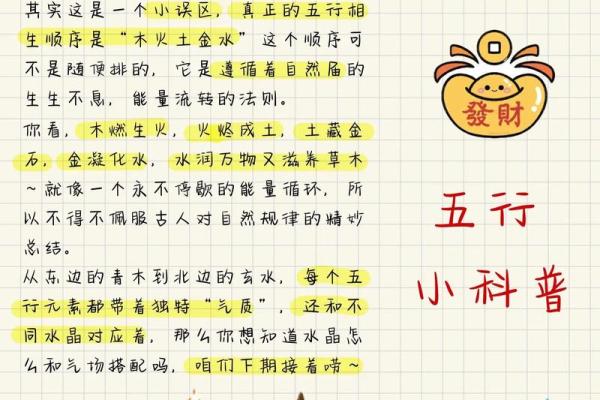 其实这是一个小误区，真正的五行相
生顺序是“木火土金水”这个顺序可
不是随便排的，它是遵循着自然届的
生生不息，能量流转的法则。
你看，木燃生火，火烬成土，土藏金
石，金凝化水，水润万物又滋养草木
~就像一个永不停歇的能量循环，所
以不得不佩服古人对自然规律的精妙
总结。
从东边的青木到北边的玄水，每个五
行元素都带着独特“气质”，还和不
同水晶对应着，那么你想知道水晶怎
么和气场搭配吗，咱们下期接着唠~
發財
五行
小科普